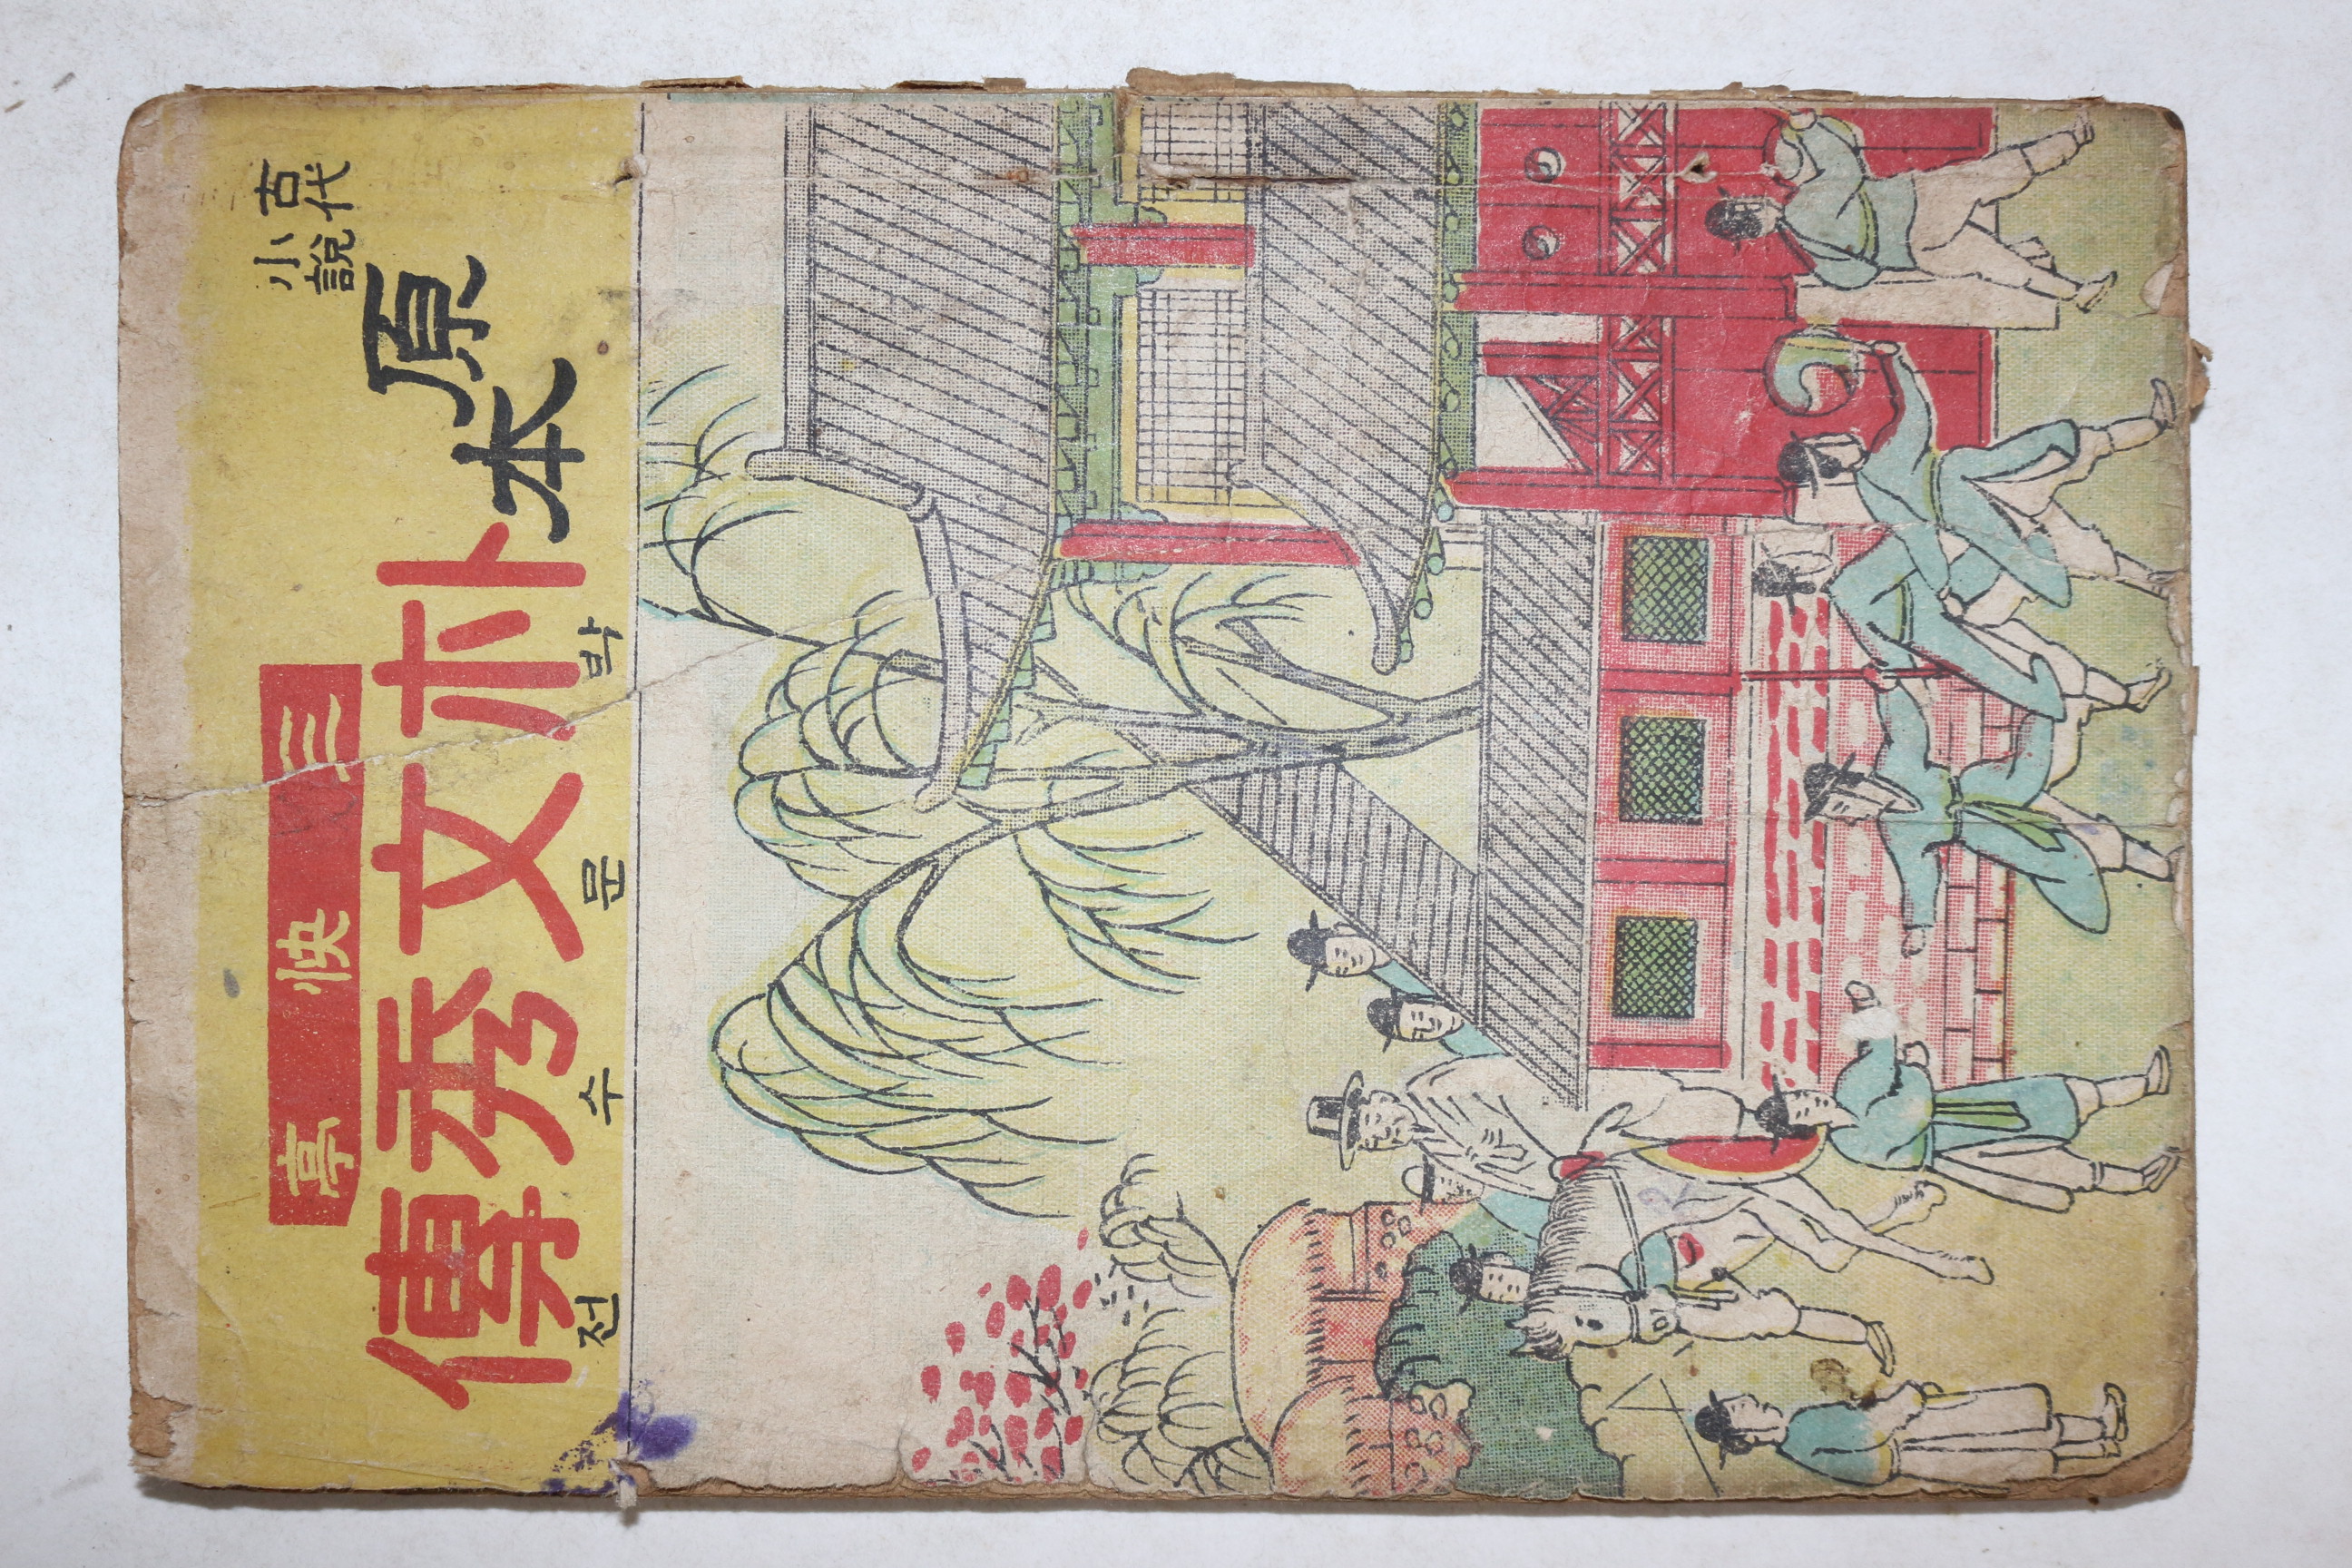 古代
小說
原本
三快亭
朴文秀傳
박문수전